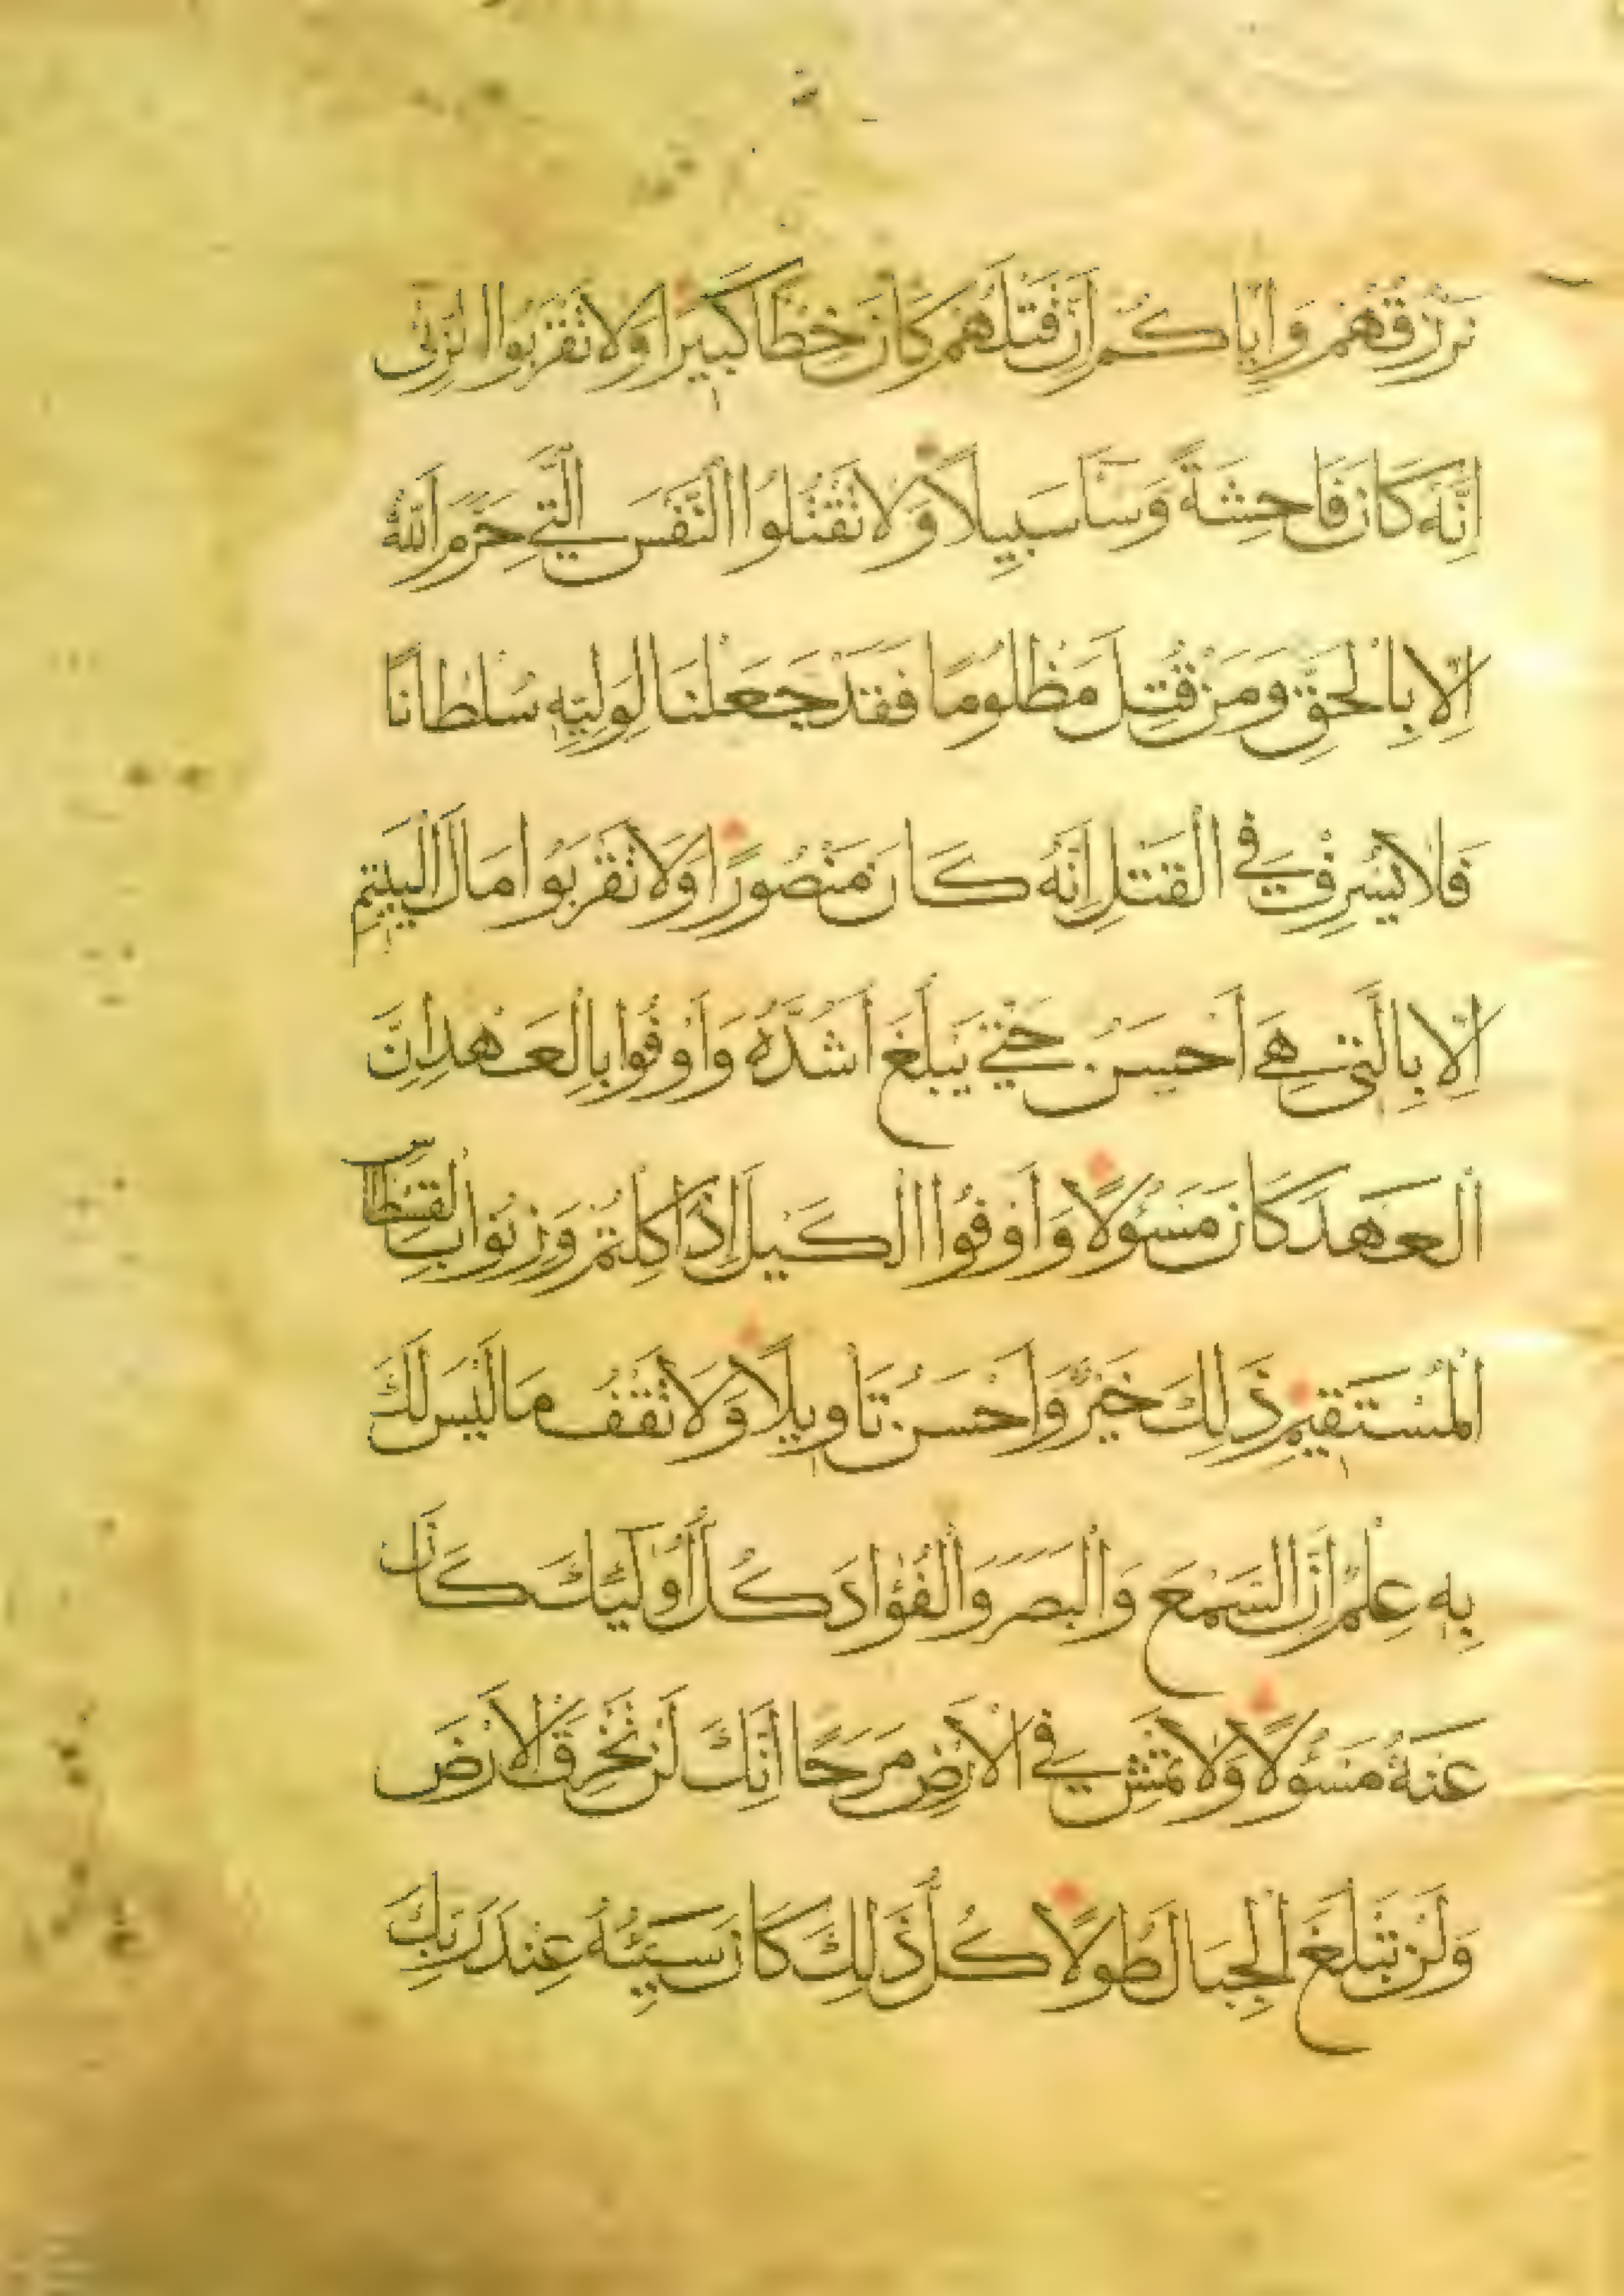 نَرْزُقُهُمْ وَاِيَّاكُمْ اِنَّ قَتْلَهُمْ كَانَ خِطْاً كَبِيرًا وَلَا تَقْرَبُوا الزِّنٰى
اِنَّهُ كَانَ فَاحِشَةً وَسَاۤءَ سَبِيلًا وَلَا تَقْتُلُوا النَّفْسَ الَّتِي حَرَّمَ اللّٰهُ
اِلَّا بِالْحَقِّ وَمَنْ قُتِلَ مَظْلُومًا فَقَدْ جَعَلْنَا لِوَلِيِّهِ سُلْطَانًا
فَلَا يُسْرِفْ فِي الْقَتْلِ اِنَّهُ كَانَ مَنْصُورًا وَلَا تَقْرَبُوا مَالَ الْيَتِيمِ
اِلَّا بِالَّتِي هِيَ اَحْسَنُ حَتّٰي يَبْلُغَ اَشُدَّهُ وَاَوْفُوا بِالْعَهْدِ اِنَّ
الْعَهْدَ كَانَ مَسْئُولًا وَاَوْفُوا الْكَيْلَ اِذَا كِلْتُمْ وَزِنُوا بِالْقِسْطَاسِ
الْمُسْتَقِيمِ ذَلِكَ خَيْرٌ وَاَحْسَنُ تَاْوِيلًا وَلَا تَقْفُ مَا لَيْسَ لَكَ
بِهِ عِلْمٌ اِنَّ السَّمْعَ وَالْبَصَرَ وَالْفُؤَادَ كُلُّ اُولٰۤئِكَ كَانَ
عَنْهُ مَسْئُولًا وَلَا تَمْشِ فِي الْاَرْضِ مَرَحًا اِنَّكَ لَنْ تَخْرِقَ الْاَرْضَ
وَلَنْ تَبْلُغَ الْجِبَالَ طُولًا كُلُّ ذَلِكَ كَانَ سَيِّئُهُ عِنْدَ رَبِّكَ